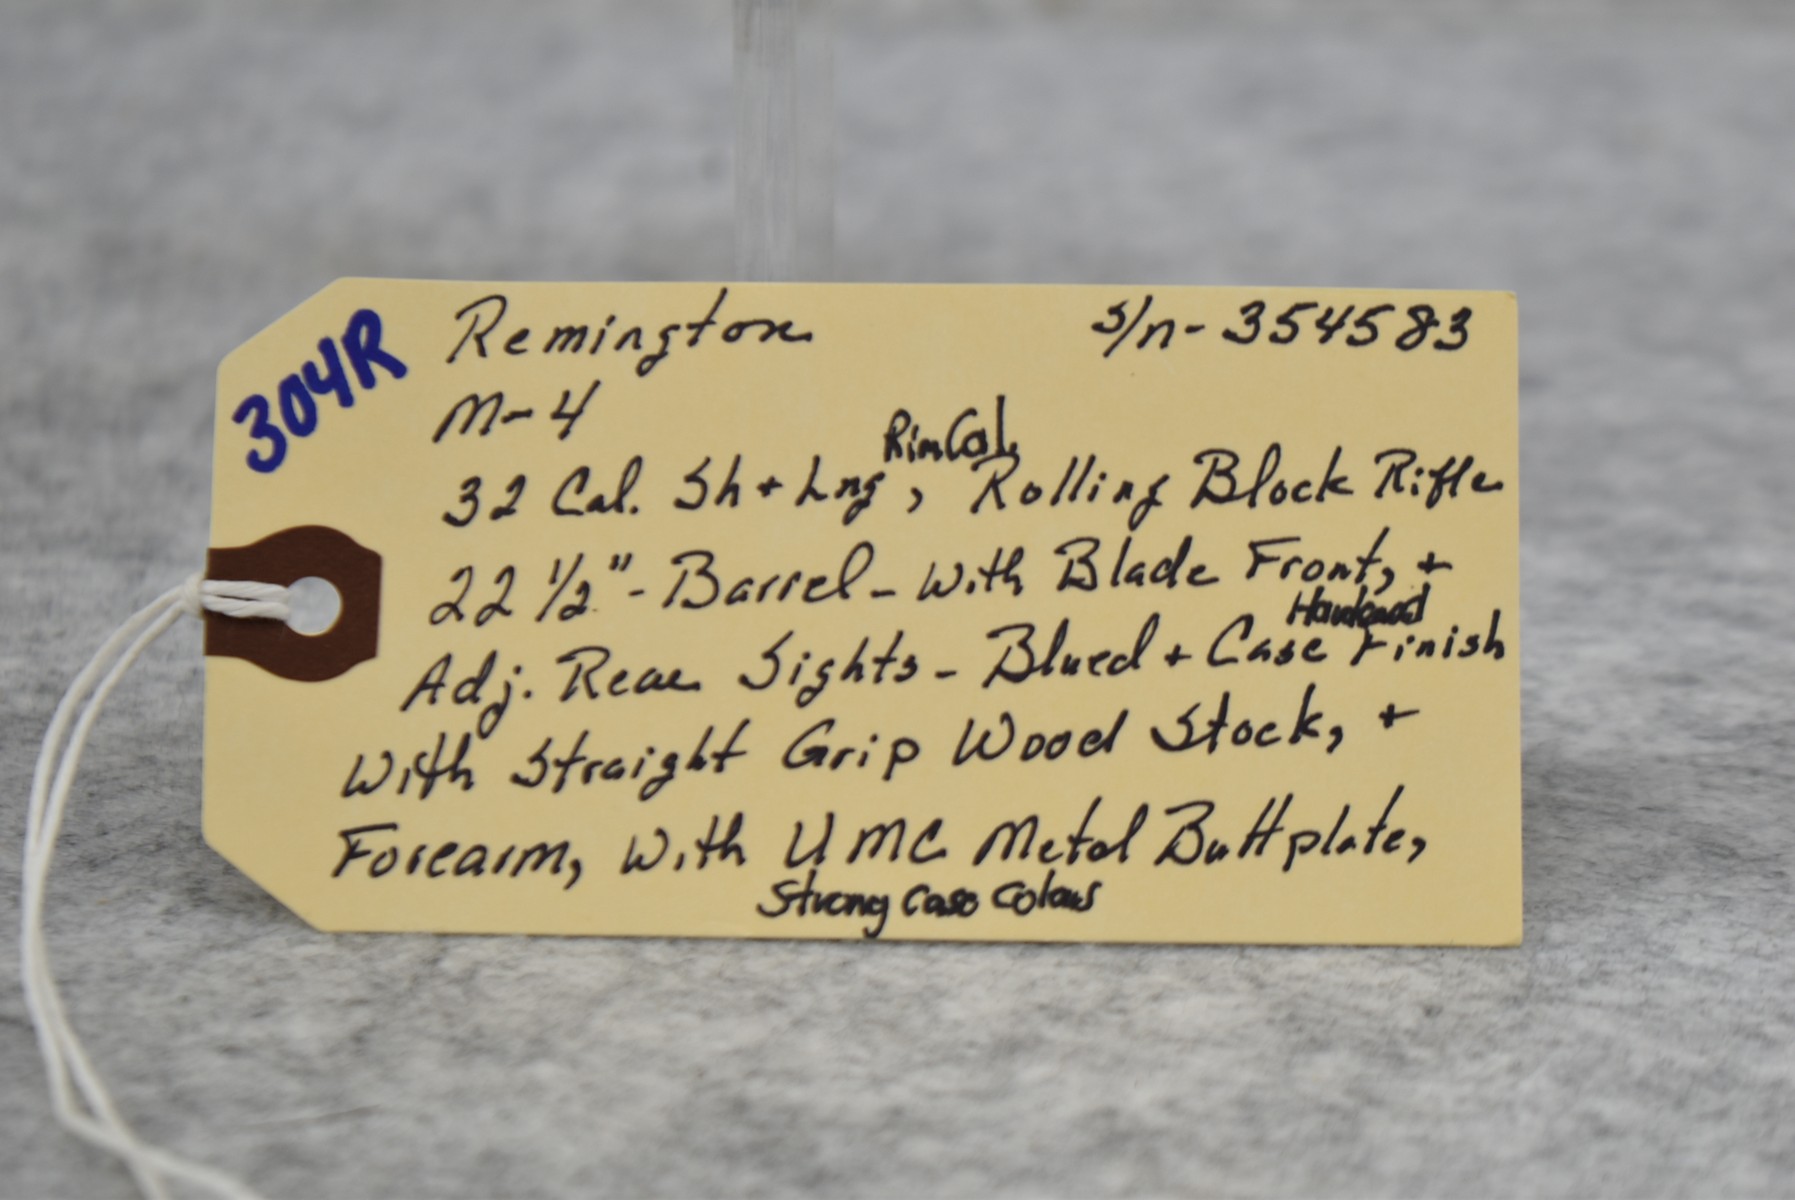 304R
Remington s/n- 354583
M-4
RimCal.
32 Cal. Sh + Lng, Rolling Block Rifle
22 1/2" - Barrel - with Blade Front, +
Hardened
Adj. Rear Sights - Blued + Case Finish
with Straight Grip Wood Stock, +
Forearm, with UMC Metal Buttplate,
Strong Case Colours